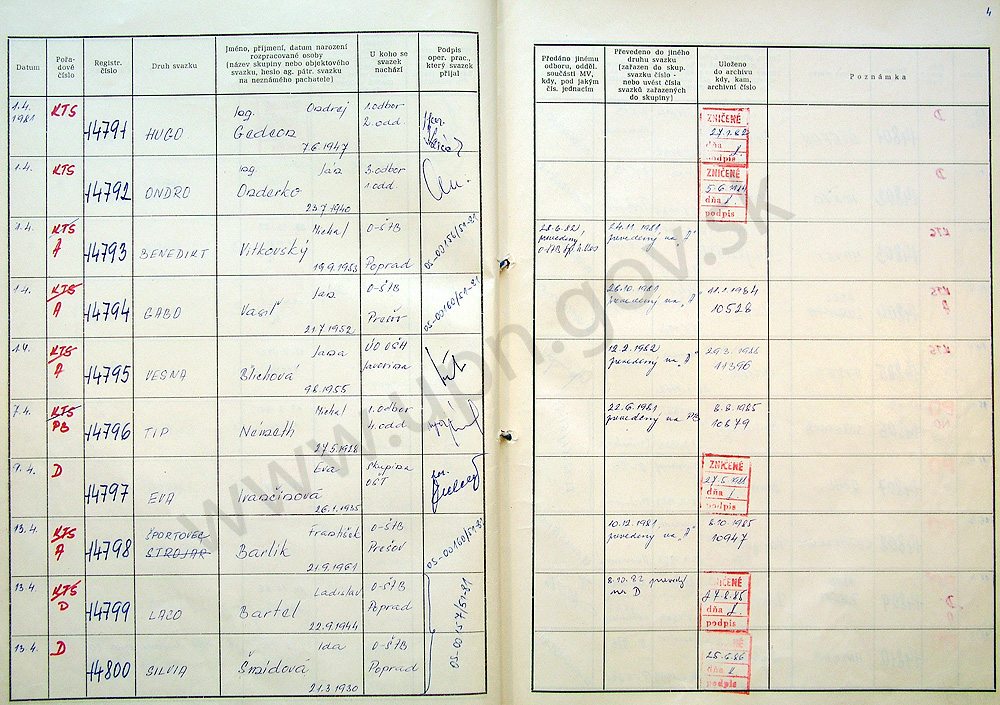 4
Datum
Pořadové číslo
Registr. číslo
Druh svazku
Jméno, příjmení, datum narození rozpracované osoby (název skupiny nebo objektového svazku, heslo ag. pátr. svazku na neznámého pachatele)
U koho se svazek nachází
Podpis oper. prac., který svazek přijal
Předáno jinému odboru, odděl. součásti MV, kdy, pod jakým čís. jednacím
Převedeno do jiného druhu svazku (zařazen do skup. svazku číslo - nebo uvést čísla svazků zařazených do skupiny)
Uloženo do archivu kdy, kam, archivní číslo
Poznámka
1.4. 1981 KTS 14791 HUGO Ing. Ondrej Gedeon 7.6.1947 1.odbor 2.odd. ZNIČENÉ dňa podpis
1.4. KTS 14792 ONDRO Ing. Ján Onderko 23.7.1940 3.odbor 1.odd. ZNIČENÉ 5.6.1984 dňa podpis
1.4. KTS A 14793 BENEDIKT Michal Vitkovský 19.9.1953 O-ŠtB Poprad OS-00156/51-81 prevedený 24.11.1981 prevedený na "A"
1.4. KTS A 14794 GABO Ján Vasiľ 21.7.1952 O-ŠtB Prešov OS-00160/51-81 26.10.1981 prevedený na "A" 11.1.1984 10528
1.4. KTS A 14795 VESNA Jana Blichová 9.8.1955 12.2.1982 prevedený na "A" 29.3.1986 11396
7.4. KTS PB 14796 TIP Michal Németh 27.5.1928 1.odbor 4.odd. 22.6.1981 prevedený na PB 8.8.1985 10679
9.4. D 14797 EVA Eva Ivančinová 26.1.1935 Skupina OŠT ZNIČENÉ 27.5.1981 dňa podpis
13.4. KTS A 14798 ŠPORTOVEC STROJAR František Barlik 21.9.1961 O-ŠtB Prešov OS-00160/51-81 10.12.1981 prevedený na "A" 8.10.1985 10947
13.4. KTS D 14799 LACO Ladislav Bartel 22.9.1944 O-ŠtB Poprad OS-00157/51-81 8.10.82 preved. na D ZNIČENÉ dňa podpis
13.4. D 14800 SILVIA Ida Šmidová 21.3.1930 O-ŠtB Poprad 25.6.86 dňa podpis
www.upn.gov.sk